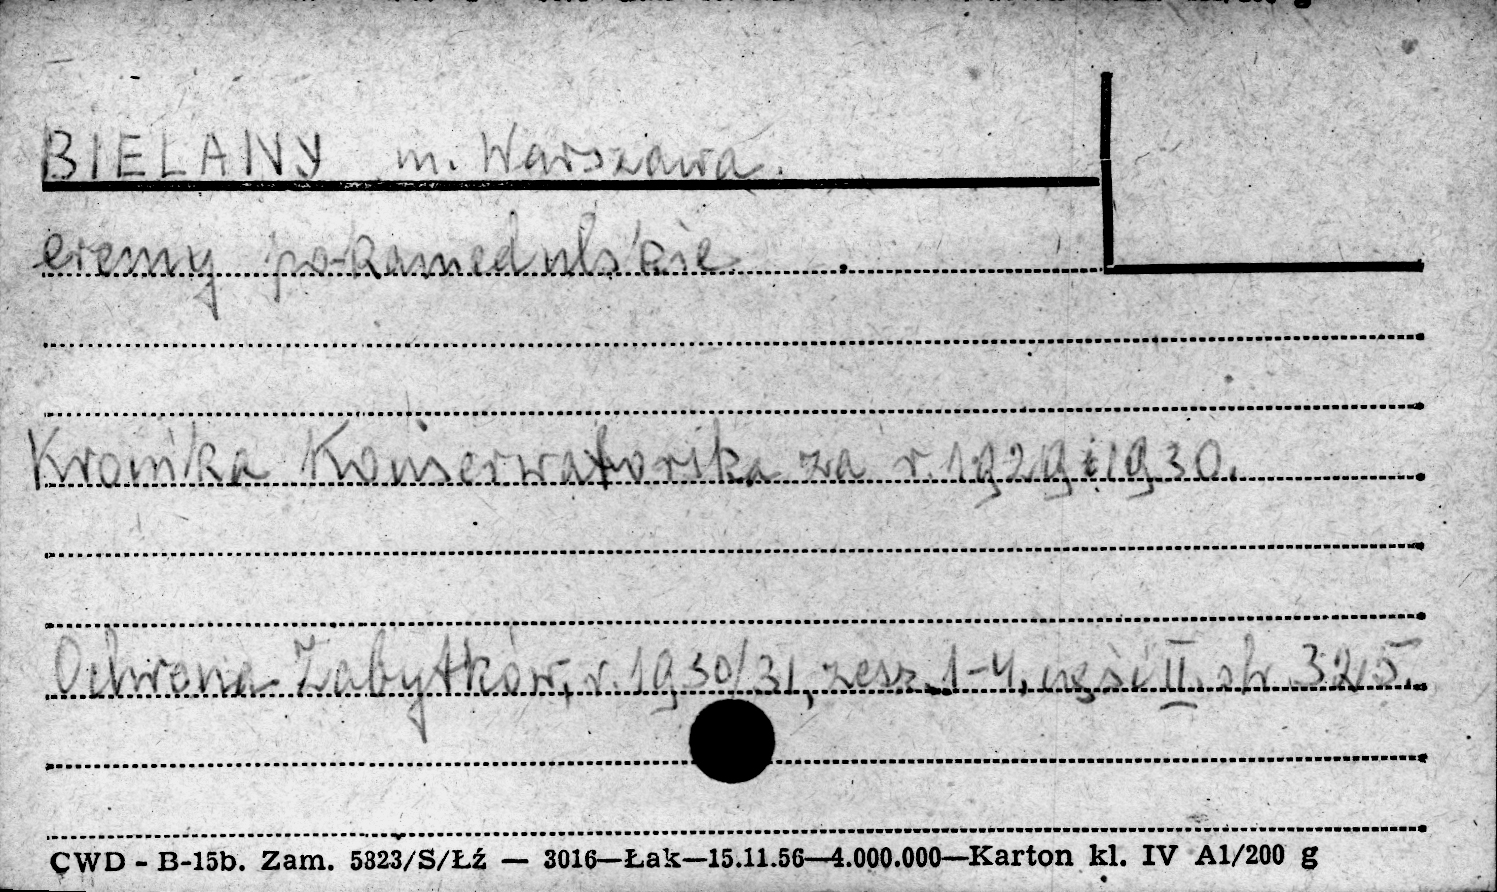 BIELANY m. Warszawa.
eremy po-kamedulskie
Kronika Konserwatorska za r. 1929 i 1930.
Ochrona Zabytków, r. 1930/31, zesz. 1-4, część II. str. 325.
CWD - B-15b. Zam. 5823/S/Łź — 3016—Łak—15.11.56—4.000.000—Karton kl. IV A1/200 g